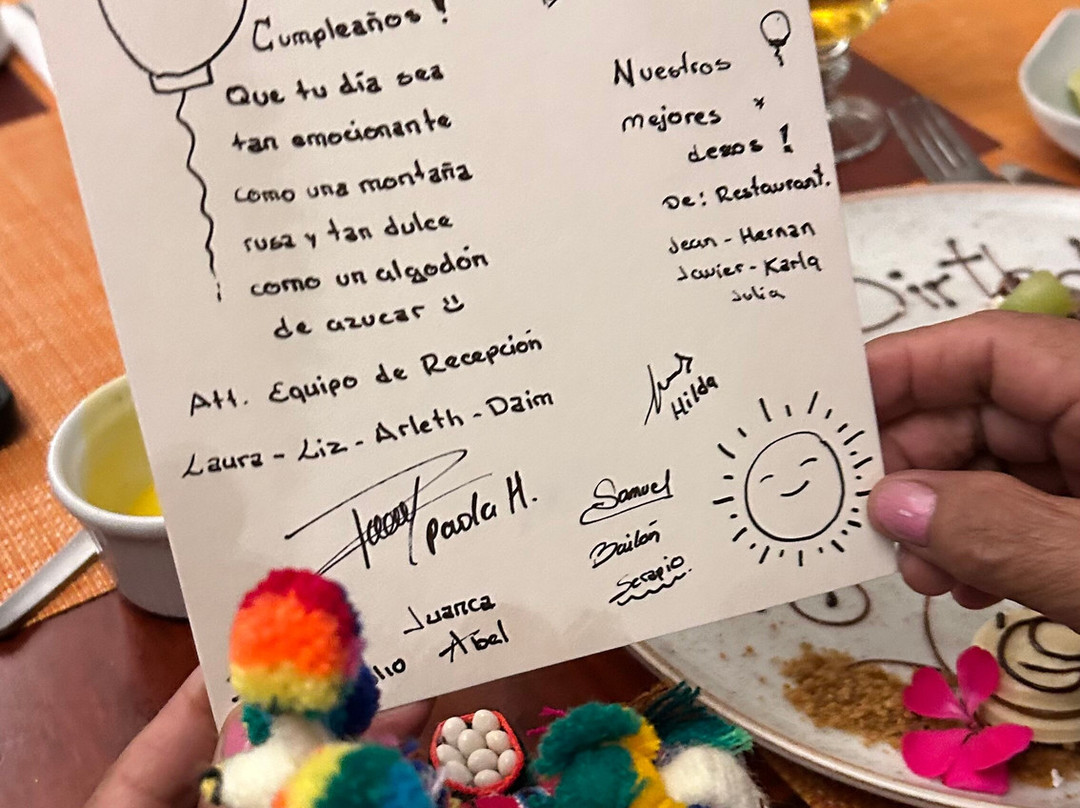 Cumpleaños!
Que tu día sea
tan emocionante
como una montaña
rusa y tan dulce
como un algodón
de azucar
Att. Equipo de Recepción
Laura - Liz - Arleth - Daim
paola H.
Juanca
Abel
Nuestros
mejores
desos!
De: Restaurant.
Jean - Hernan
Javier - Karla
Julia
Hilda
Samuel
Bailón
Serapio.